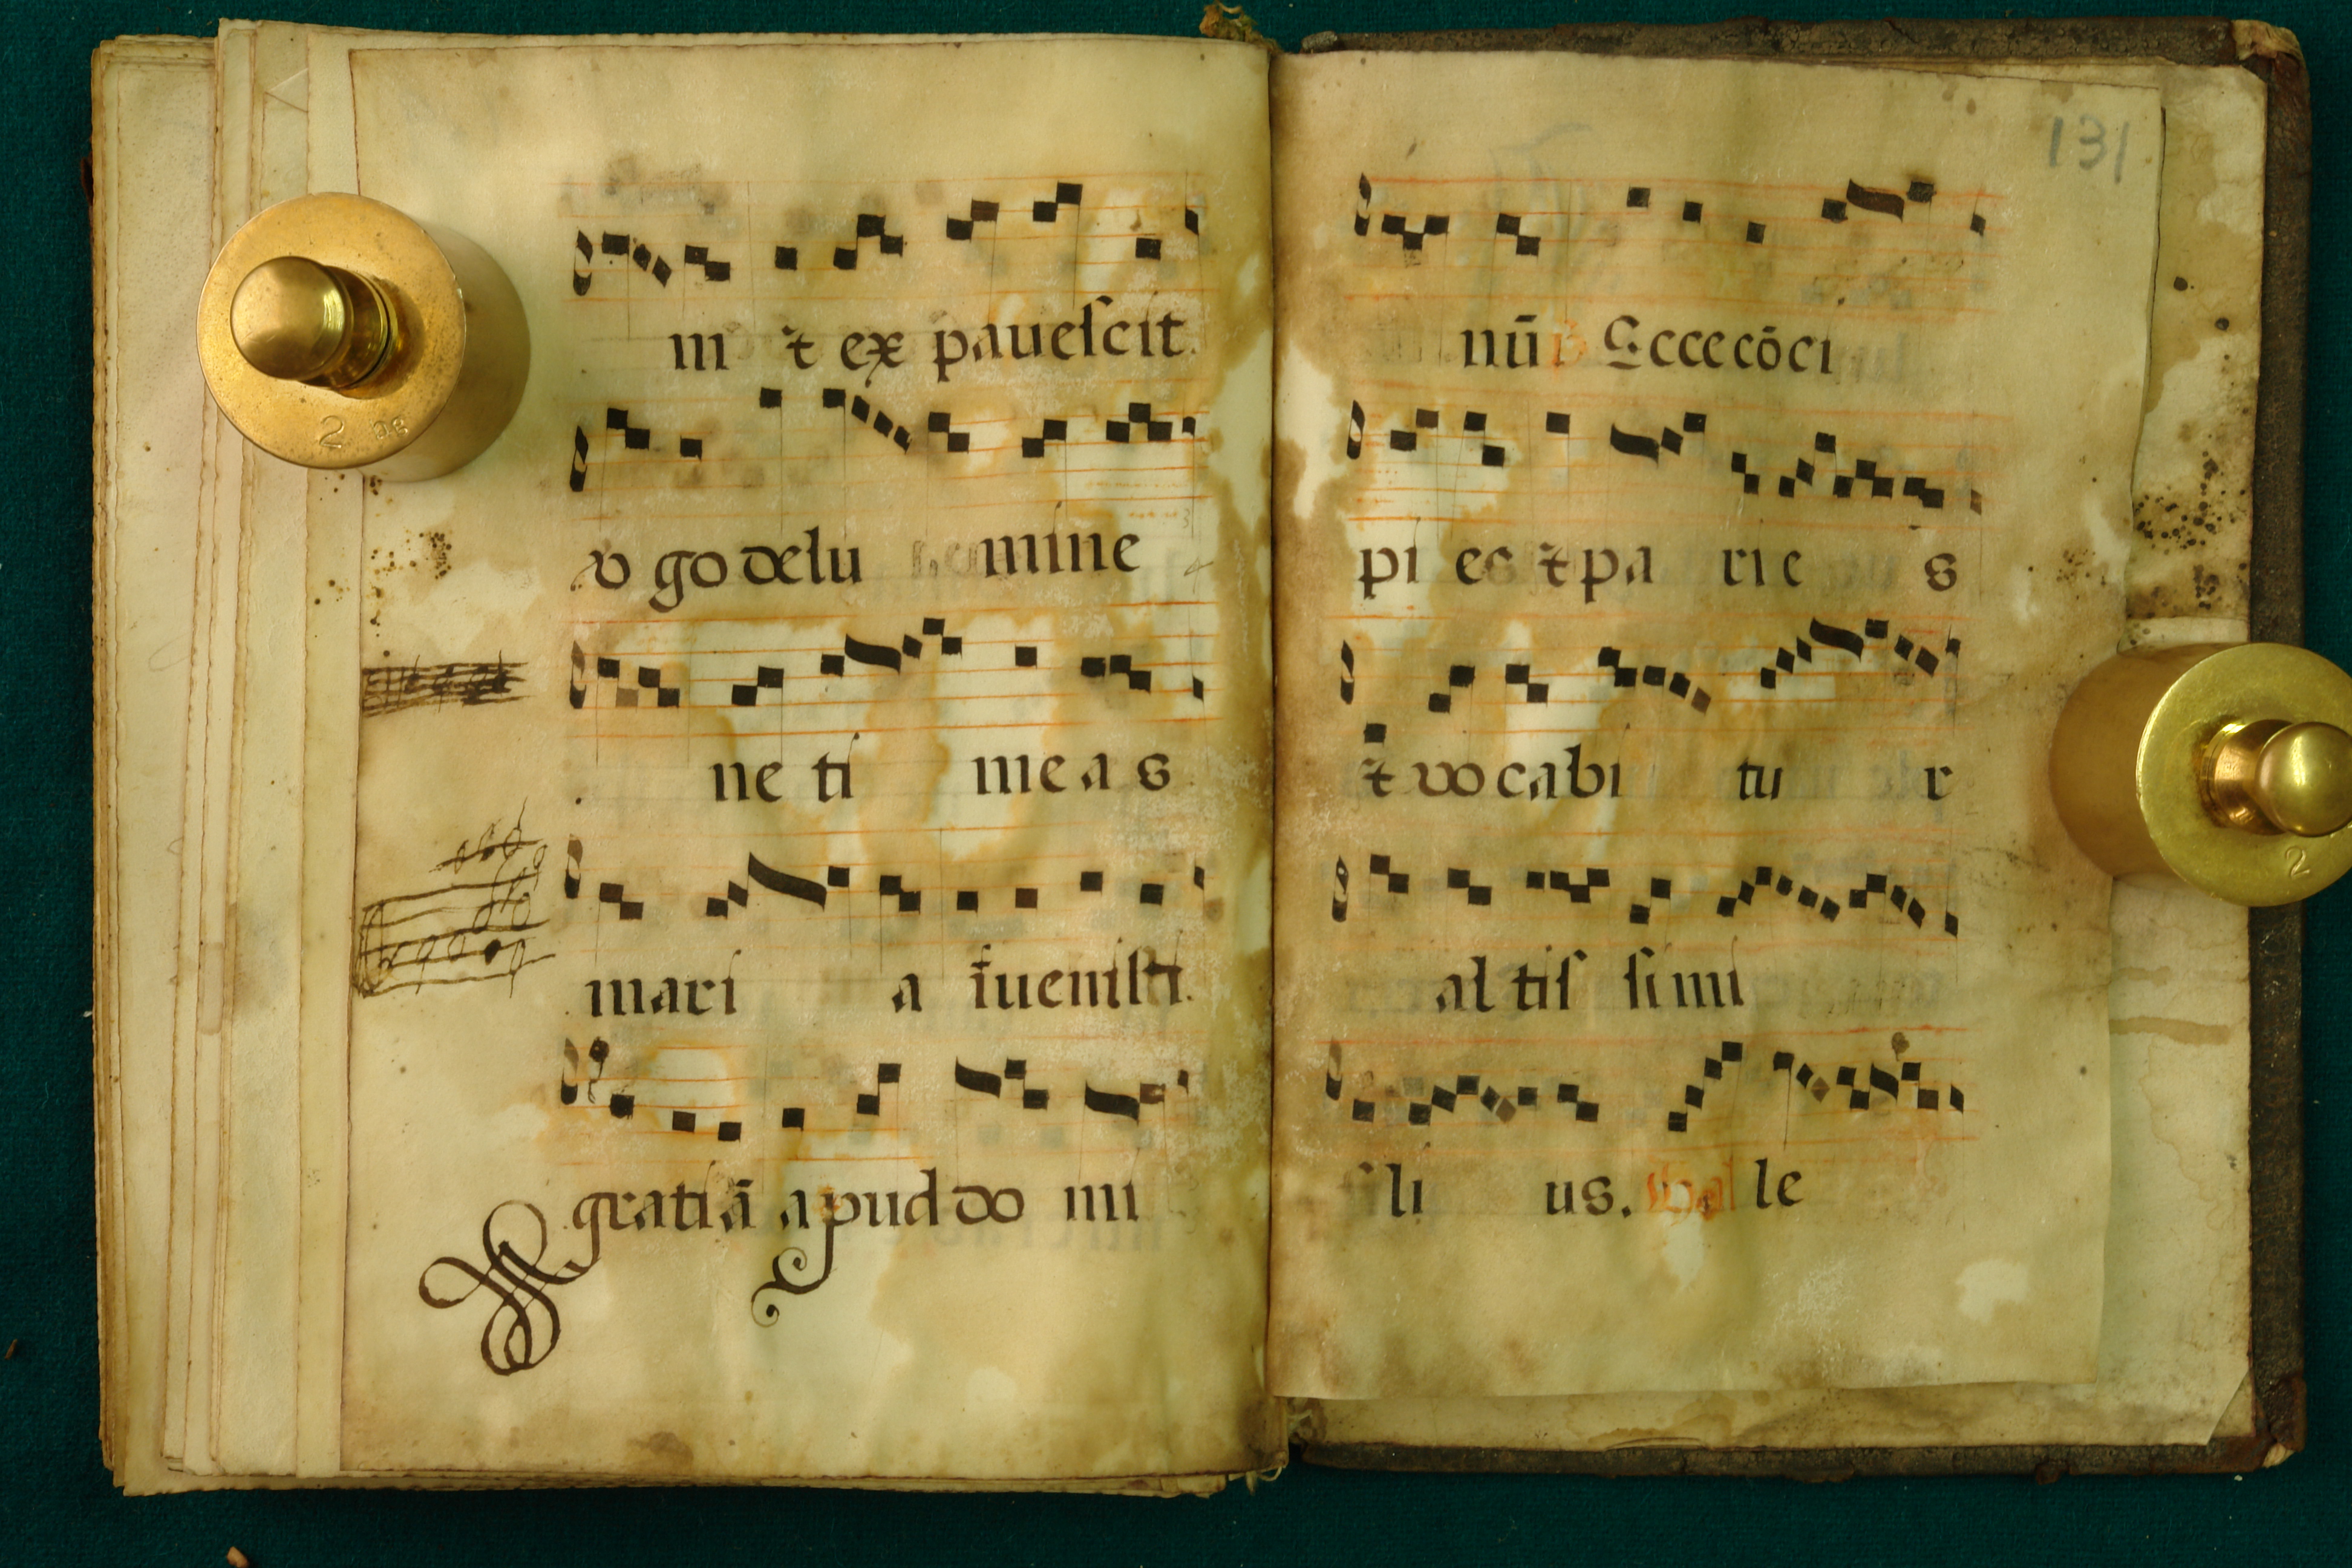 ni ⁊ ex pauescit
v go de lu mine
ne ti me a s
mari a īuenisti
gratiā apud do mi
131
nū Ecce cōci
pi es ⁊ pa ri e s
⁊ vo cabi tu r
al tis simi
fi li us. al le
2
2